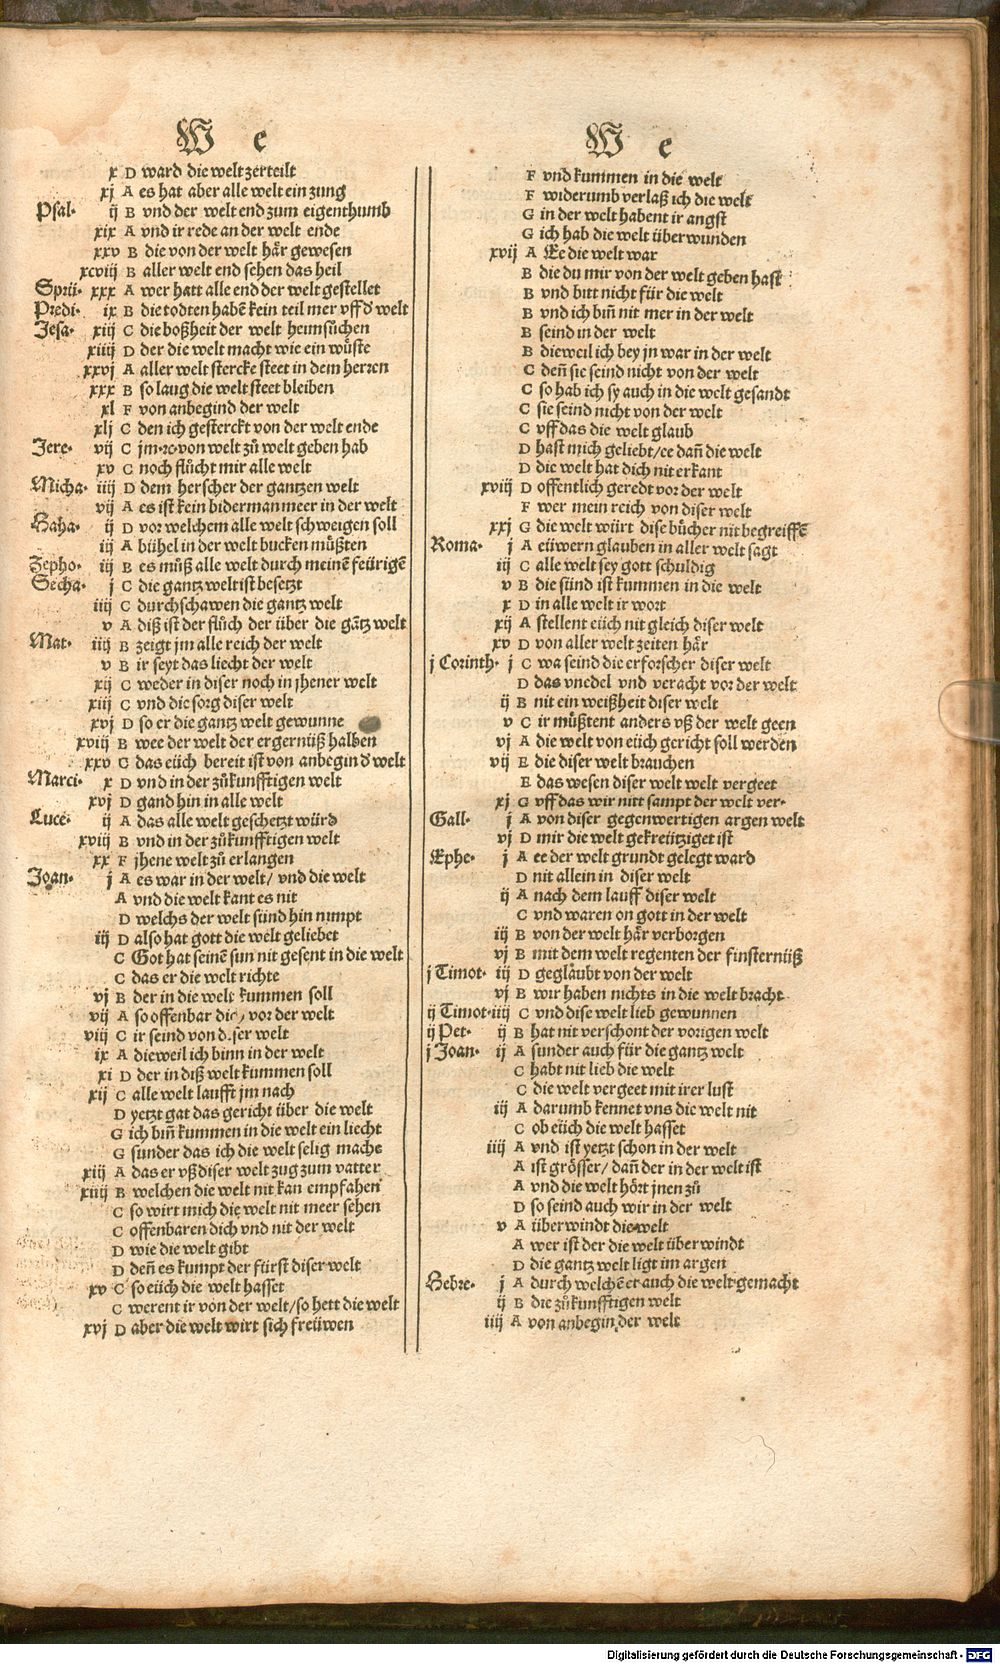 W e
x D ward die welt zerteilt
xj A es hat aber alle welt ein zung
Psal· ij B vnd der welt end zum eigenthumb
xix A vnd ir rede an der welt ende
xxv B die von der welt här gewesen
xcviij B aller welt end sehen das heil
Sprü· xxx A wer hatt alle end der welt gestellet
Predi· ix B die todten habē kein teil mer vff d' welt
Jesa· xiij C die boßheit der welt heimsůchen
xiiij D der die welt macht wie ein wůste
xxvj A aller welt stercke steet in dem herren
xxx B so lang die welt steet bleiben
xl F von anbegind der welt
xlj C den ich gesterckt von der welt ende
Jere· vij C jm·ꝛc·von welt zů welt geben hab
xv C noch flůcht mir alle welt
Micha· iiij D dem herscher der gantzen welt
vij A es ist kein biderman meer in der welt
Haba· ij D vor welchem alle welt schweigen soll
iij A bühel in der welt bucken müßten
Zepho· iij B es můß alle welt durch meinē feürigē
Secha· j C die gantz welt ist besetzt
iiij C durchschawen die gantz welt
v A diß ist der flůch der über die gātz welt
Mat· iiij B zeigt jm alle reich der welt
v B ir seyt das liecht der welt
xij C weder in diser noch in jhener welt
xiij C vnd die sorg diser welt
xvj D so er die gantz welt gewunne
xviij B wee der welt der ergernüß halben
xxv C das eüch bereit ist von anbegin d' welt
Marci· x D vnd in der zůkunfftigen welt
xvj D gand hin in alle welt
Luce· ij A das alle welt geschetzt würd
xviij B vnd in der zůkunfftigen welt
xx F jhene welt zů erlangen
Joan· j A es war in der welt/ vnd die welt
A vnd die welt kant es nit
D welchs der welt sünd hin nimpt
iij D also hat gott die welt geliebet
C Got hat seinē sun nit gesent in die welt
C das er die welt richte
vj B der in die welt kummen soll
vij A so offenbar dich vor der welt
viij C ir seind von diser welt
ix A dieweil ich binn in der welt
xi D der in diß welt kummen soll
xij C alle welt laufft jm nach
D yetzt gat das gericht über die welt
G ich biñ kummen in die welt ein liecht
G sunder das ich die welt selig mache
xiij A das er vß diser welt zug zum vatter
xiiij B welchen die welt nit kan empfahen
C so wirt mich die welt nit meer sehen
C offenbaren dich vnd nit der welt
D wie die welt gibt
D deñ es kumpt der fürst diser welt
xv C so eüch die welt hasset
C werent ir von der welt/so hett die welt
xvj D aber die welt wirt sich freüwen
W e
F vnd kummen in die welt
F widerumb verlaß ich die welt
G in der welt habent ir angst
G ich hab die welt überwunden
xvij A Ee die welt war
B die du mir von der welt geben hast
B vnd bitt nicht für die welt
B vnd ich biñ nit mer in der welt
B seind in der welt
B dieweil ich bey jn war in der welt
C deñ sie seind nicht von der welt
C so hab ich sy auch in die welt gesandt
C sie seind nicht von der welt
C vff das die welt glaub
D hast mich geliebt/ee dañ die welt
D die welt hat dich nit erkant
xviij D offentlich geredt vor der welt
F wer mein reich von diser welt
xxj G die welt würt dise bücher nit begreiffē
Roma· j A eüwern glauben in aller welt sagt
iij C alle welt sey gott schuldig
v B die sünd ist kummen in die welt
x D in alle welt ir wort
xij A stellent eüch nit gleich diser welt
xv D von aller welt zeiten här
j Corinth· j C wa seind die erforscher diser welt
D das vnedel vnd veracht vor der welt
ij B nit ein weißheit diser welt
v C ir müßtent anders vß der welt geen
vj A die welt von eüch gericht soll werden
vij E die diser welt brauchen
E das wesen diser welt welt vergeet
xj G vff das wir nitt sampt der welt ver-
Gall· j A von diser gegenwertigen argen welt
vj D mir die welt gekreütziget ist
Ephe· j A ee der welt grundt gelegt ward
D nit allein in diser welt
ij A nach dem lauff diser welt
C vnd waren on gott in der welt
iij B von der welt här verborgen
vj B mit dem welt regenten der finsternüß
j Timot· iij D gegläubt von der welt
vj B wir haben nichts in die welt bracht
ij Timot·iiij C vnd dise welt lieb gewunnen
ij Pet· ij B hat nit verschont der vorigen welt
j Joan· ij A sunder auch für die gantz welt
C habt nit lieb die welt
C die welt vergeet mit irer lust
iij A darumb kennet vns die welt nit
C ob eüch die welt hasset
iiij A vnd ist yetzt schon in der welt
A ist grösser/ dañ der in der welt ist
A vnd die welt hört jnen zů
D so seind auch wir in der welt
v A überwindt die welt
A wer ist der die welt überwindt
D die gantz welt ligt im argen
Hebre· j A durch welchē er auch die welt gemacht
ij B die zůkunfftigen welt
iiij A von anbegin der welt
Digitalisierung gefördert durch die Deutsche Forschungsgemeinschaft - DFG